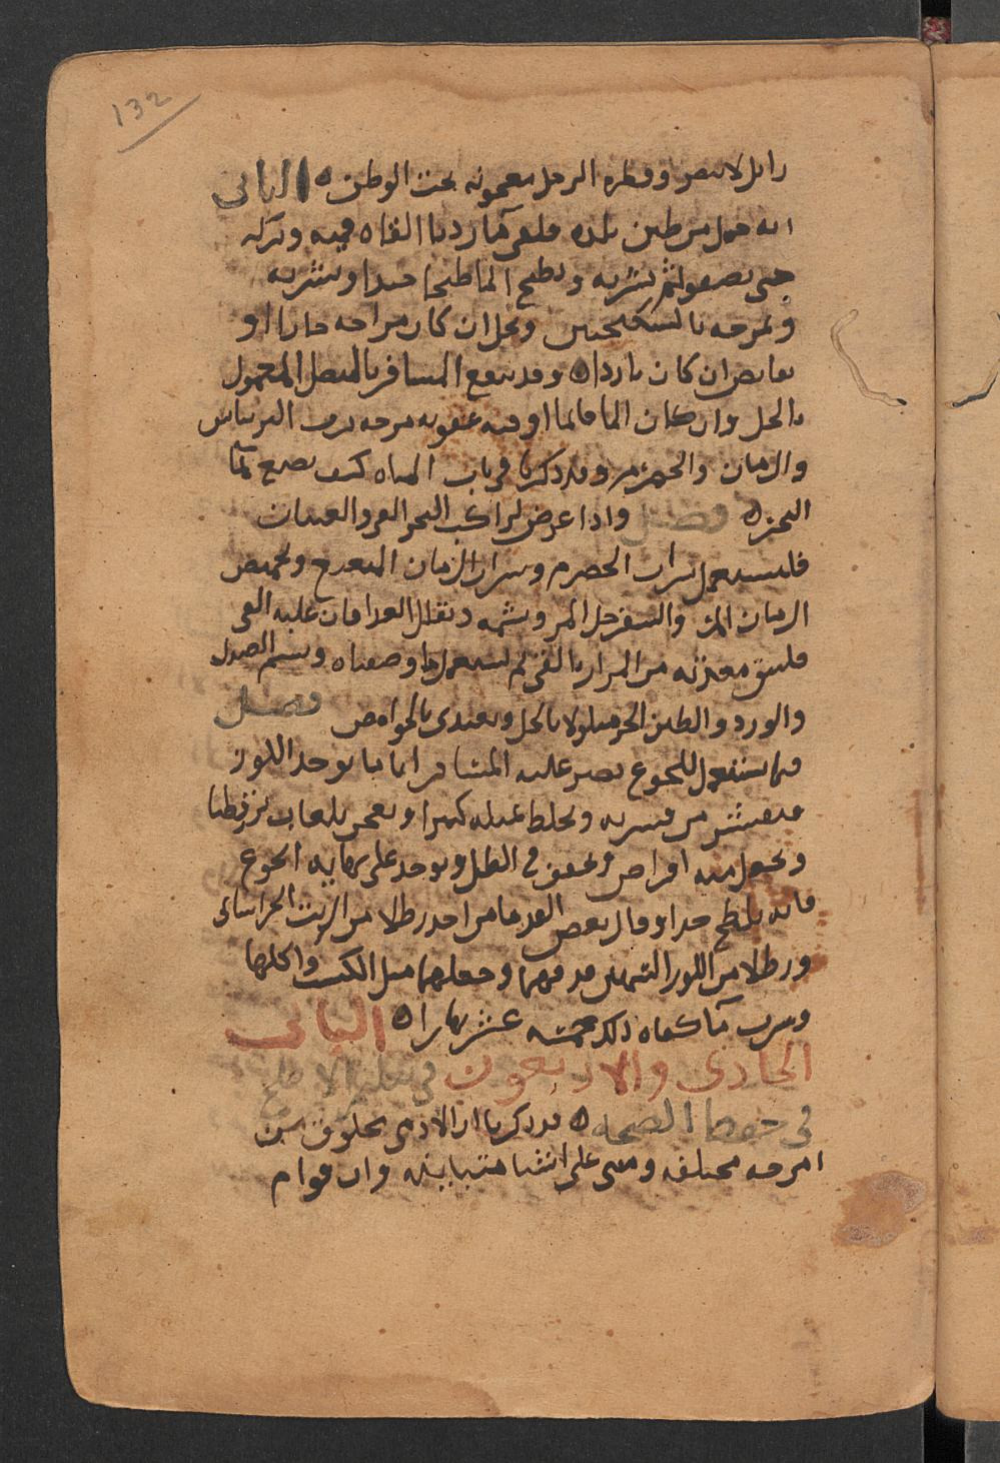 132
وفطره الرجل معجونه بحب الوطن ه الثانى
انه حمل من طين بلده فلقى ما رديا القاه فيه وتركه
حتى يصفو ثم يشربه ويطبخ الما طبخا جيدا ويشربه
ويمزجه بالسكنجبين وبخل ان كان مزاجه حارا او
ان كان باردا ه وقد ينتفع المسافر بالبصل المعمول
بالخل وان كان الما مالحا او فيه عفونه مزجه برب الريباس
والرمان والحصرم وقد ذكرنا فى باب المياه كيف يصنع بما
البحر ه فصل واذا عرض لراكب البحر القى والغثيان
فليستعمل شراب الحصرم وشراب الرمان المنعنع ويمتص
الرمان المز والسفرجل المز ويشمه ويقلل الغدا فان غلبه القى
فلينق معدته من المرار بالقى ثم يستعمل ما وصفناه ويشم الصندل
والورد والطين الحر مبلولا بالخل ويغتدى بالحوامض فصل
فيما يستعمل للجوع يصبر عليه المسافر اياما يوخذ اللوز
فيقشر من قشريه ويخلط كثيرا ويعجن بلعاب بزرقطنا
ويجعل منه اقراص ويجفف فى الظل ويوخذ على الجوع
فانه جدا وقال بعض القدما من اخذ رطلا من الزيت
ورطلا من اللوز وجعلهما مثل واكلها
وشرب ما كفاه ذلك خمسه عشر نهارا ه الباب
الحادى والاربعون فى
فى حفظ الصحه ه قد ذكرنا ان الادمى مخلوق من
امزجه مختلفه ومبنى على اشيا متباينه وان قوام